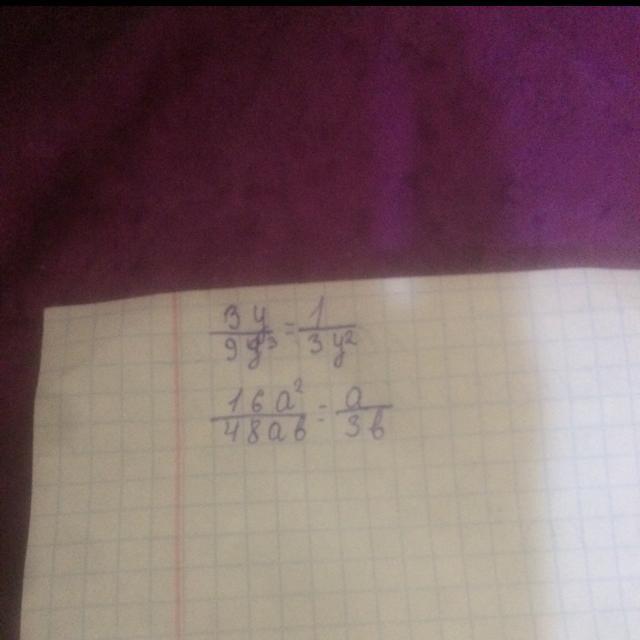 3y/9y³ = 1/3y²
16a²/48ab = a/3b